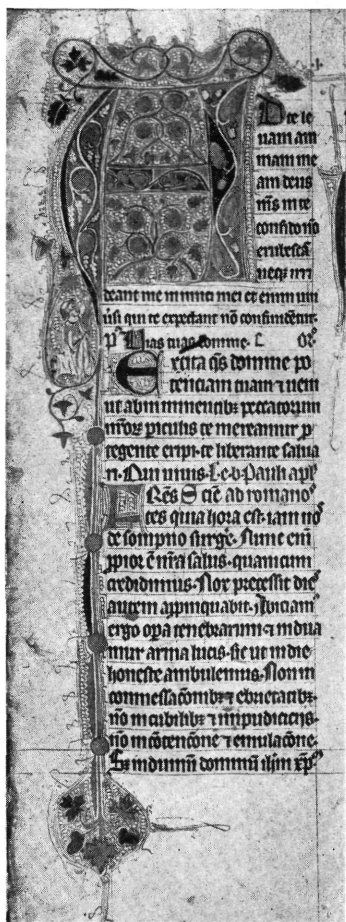 D te le
uam am
mam me
am deus
m̄s in te
confido nō
erubescā
neq; irri
deant me inimici mei et enim uni
ūsi qui te expectant nō confundentur.
p̄s Uias tuas domine. ꝯ. Or̄o
Excita q̄s domine po
tenciam tuam ⁊ ueni
ut ab inminentibꝫ peccatorum
nr̄oꝝ ꝑiculis te mereamur ꝓ
tegente eripi. te liberante salua
ri. Qui uiuis. L. e. b. Pauli apl̄i
Fr̄es Sciē ad romano
tes quia hora est. iam nos
de sompno surge. Nunc eni
ꝓpior ē nr̄a salus. quam cum
credidimus. Nox precessit dies
autem appinquabit. Abiciam
ergo oꝑa tenebrarum. ⁊ indua
mur arma lucis. sic ut in die
honeste ambulemus. Non in
commessacōnibꝫ ⁊ ebrietatibꝫ.
nō in cubilibꝫ ⁊ impudiciciis.
nō in cōtencōne ⁊ emulacōne.
Sꝫ induimi dominū ihm xp̄m